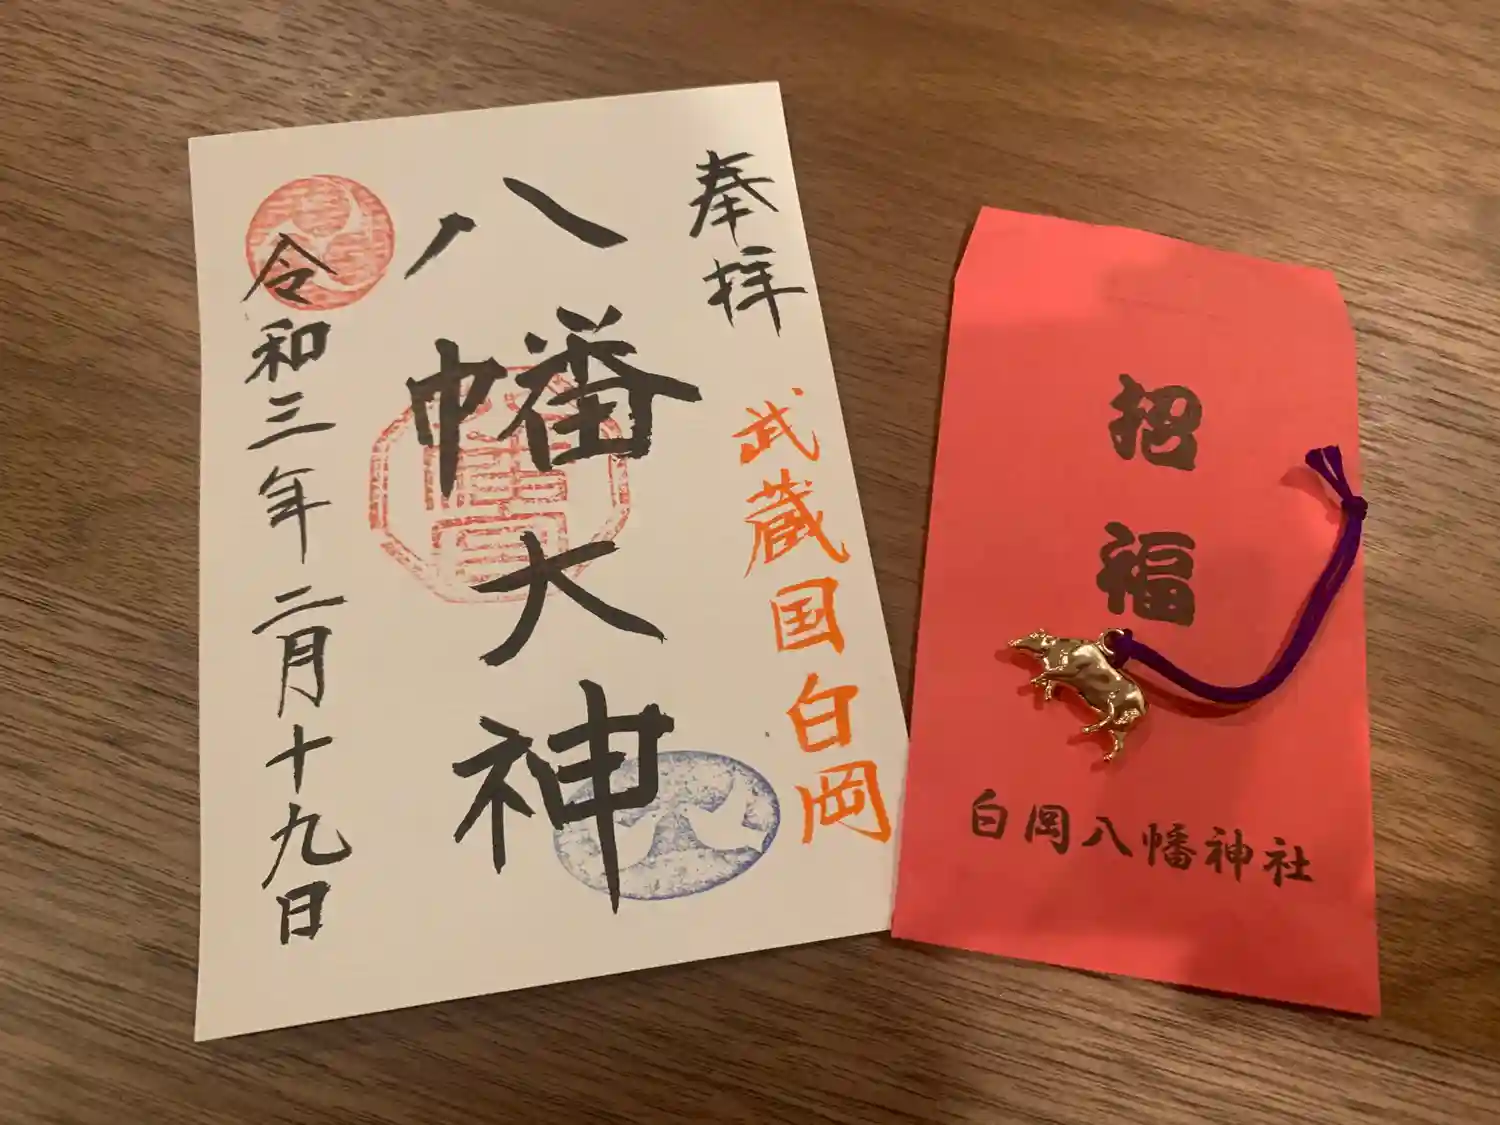 奉拝
武蔵国白岡
八幡大神
令和三年二月十九日
招福
白岡八幡神社